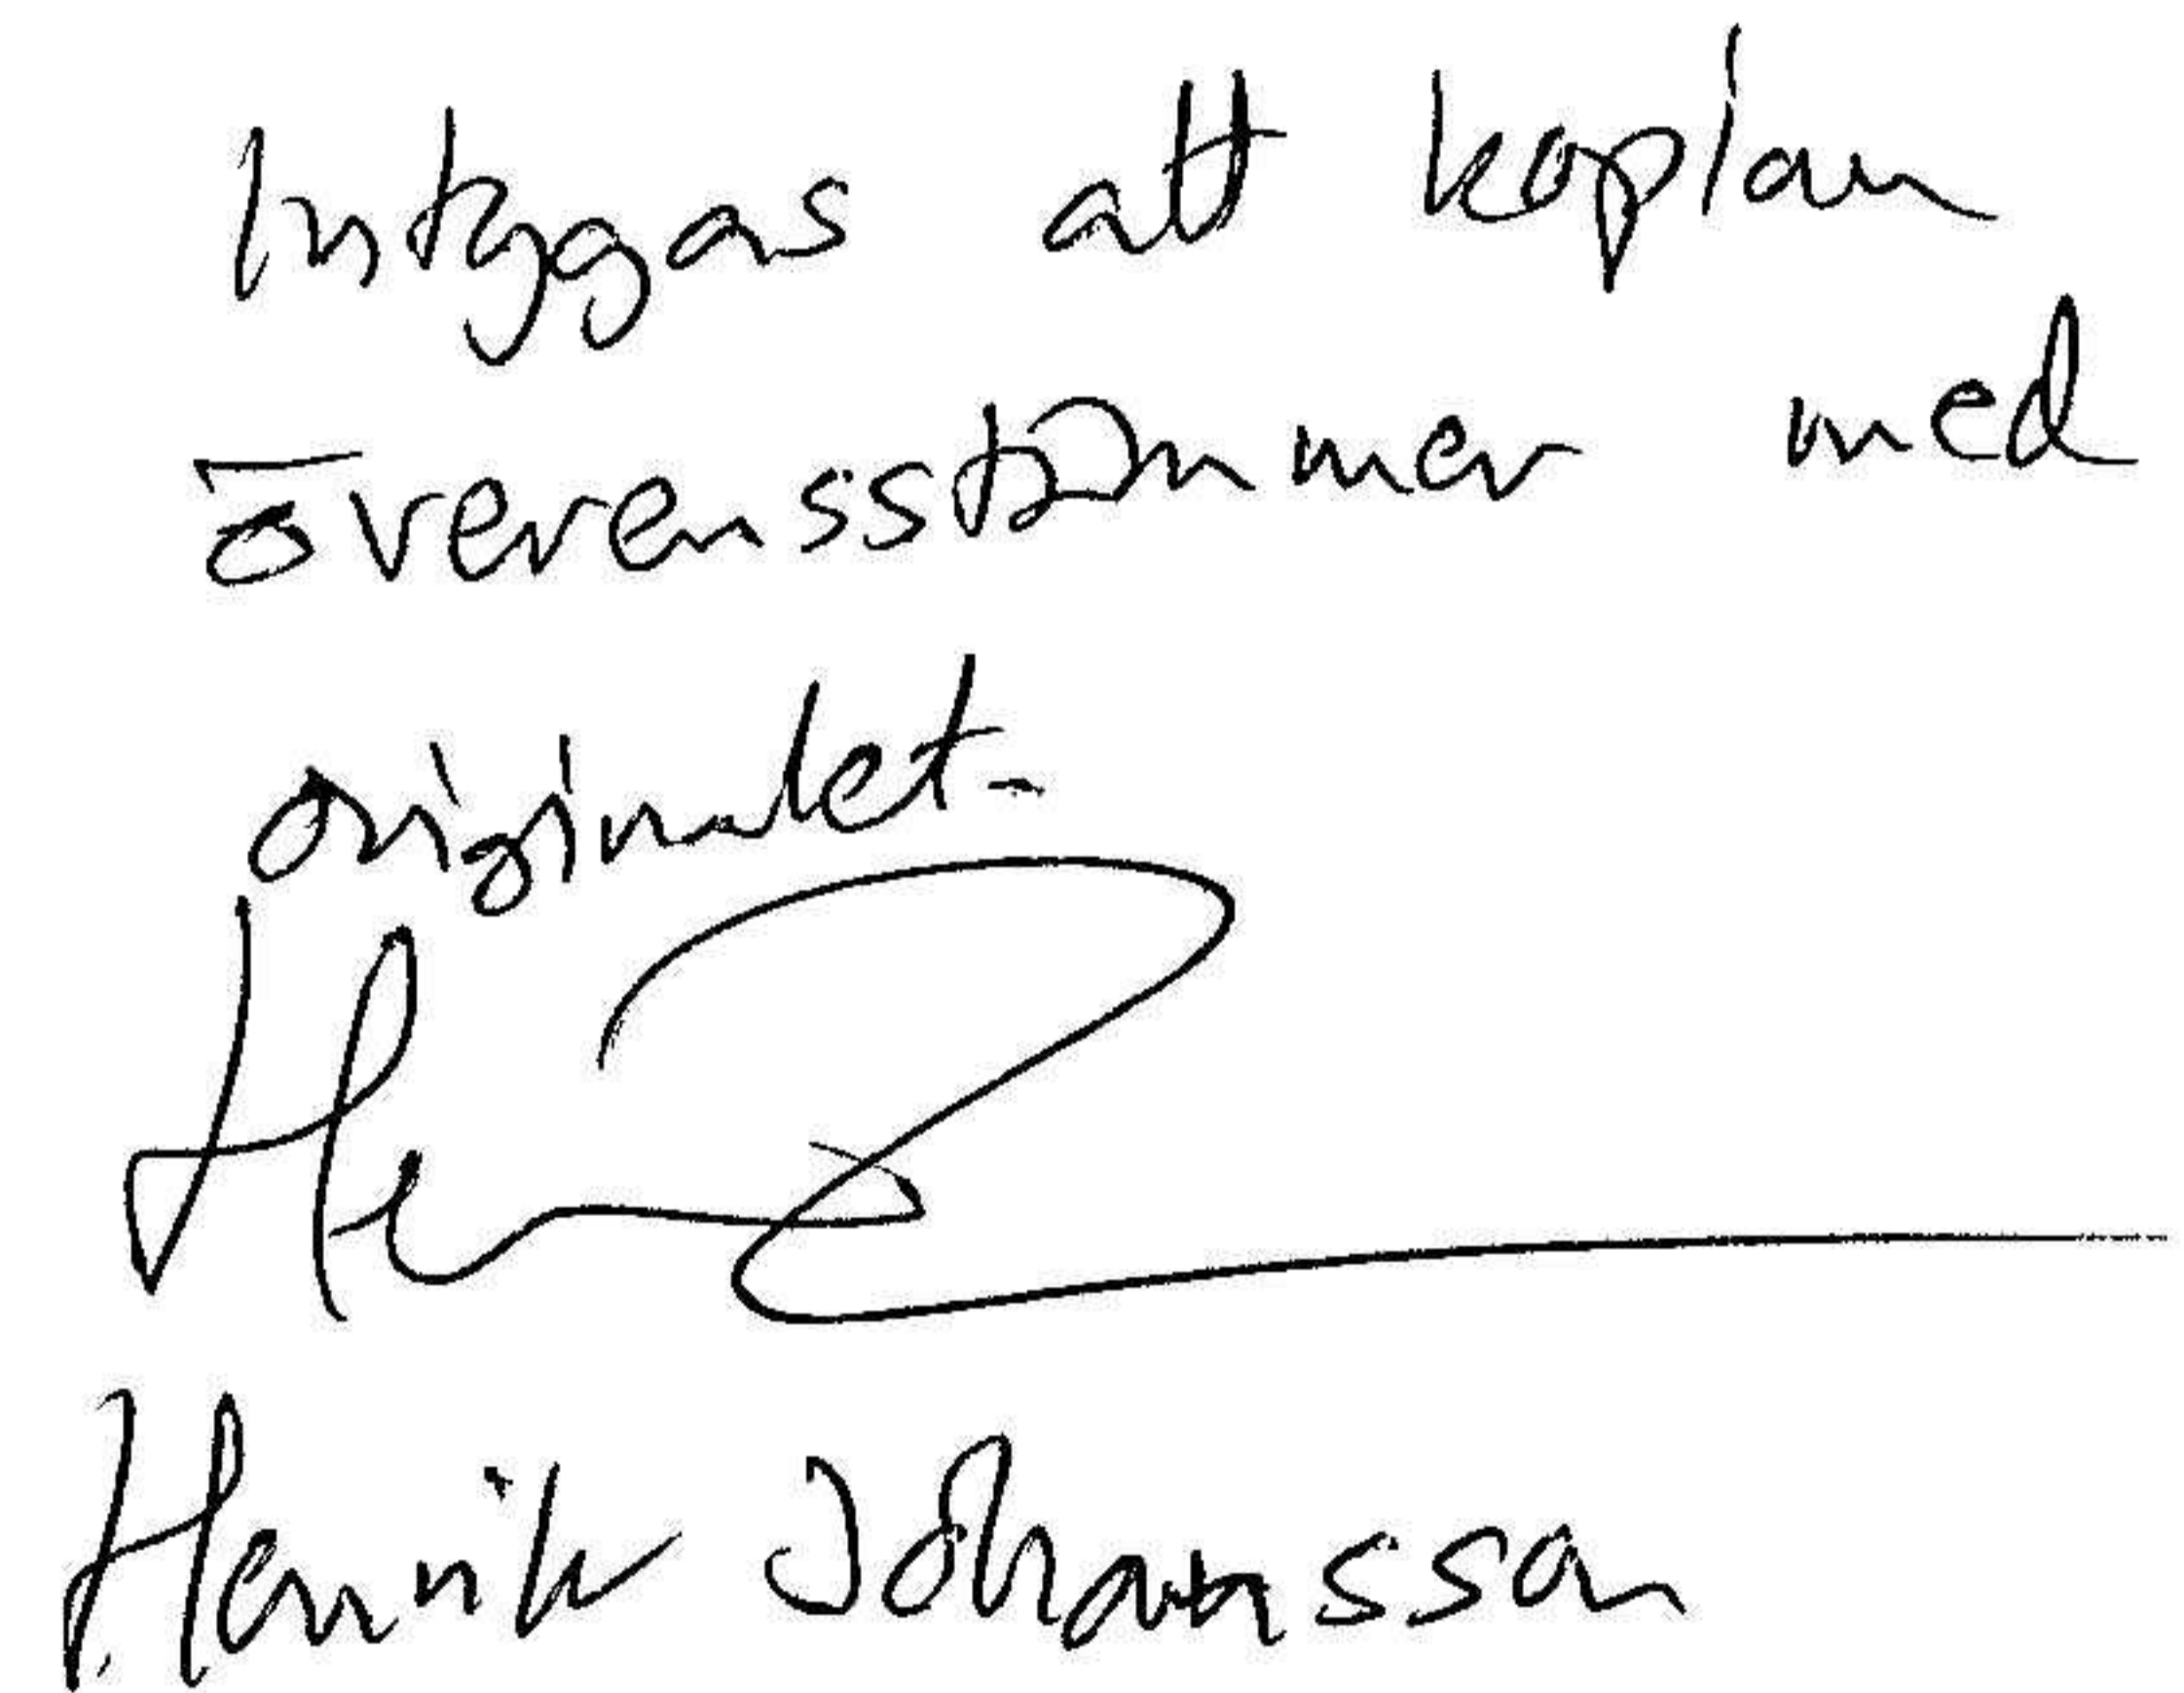 Intygas att kopian
överensstämmer med
originalet.
Henrik Johansson